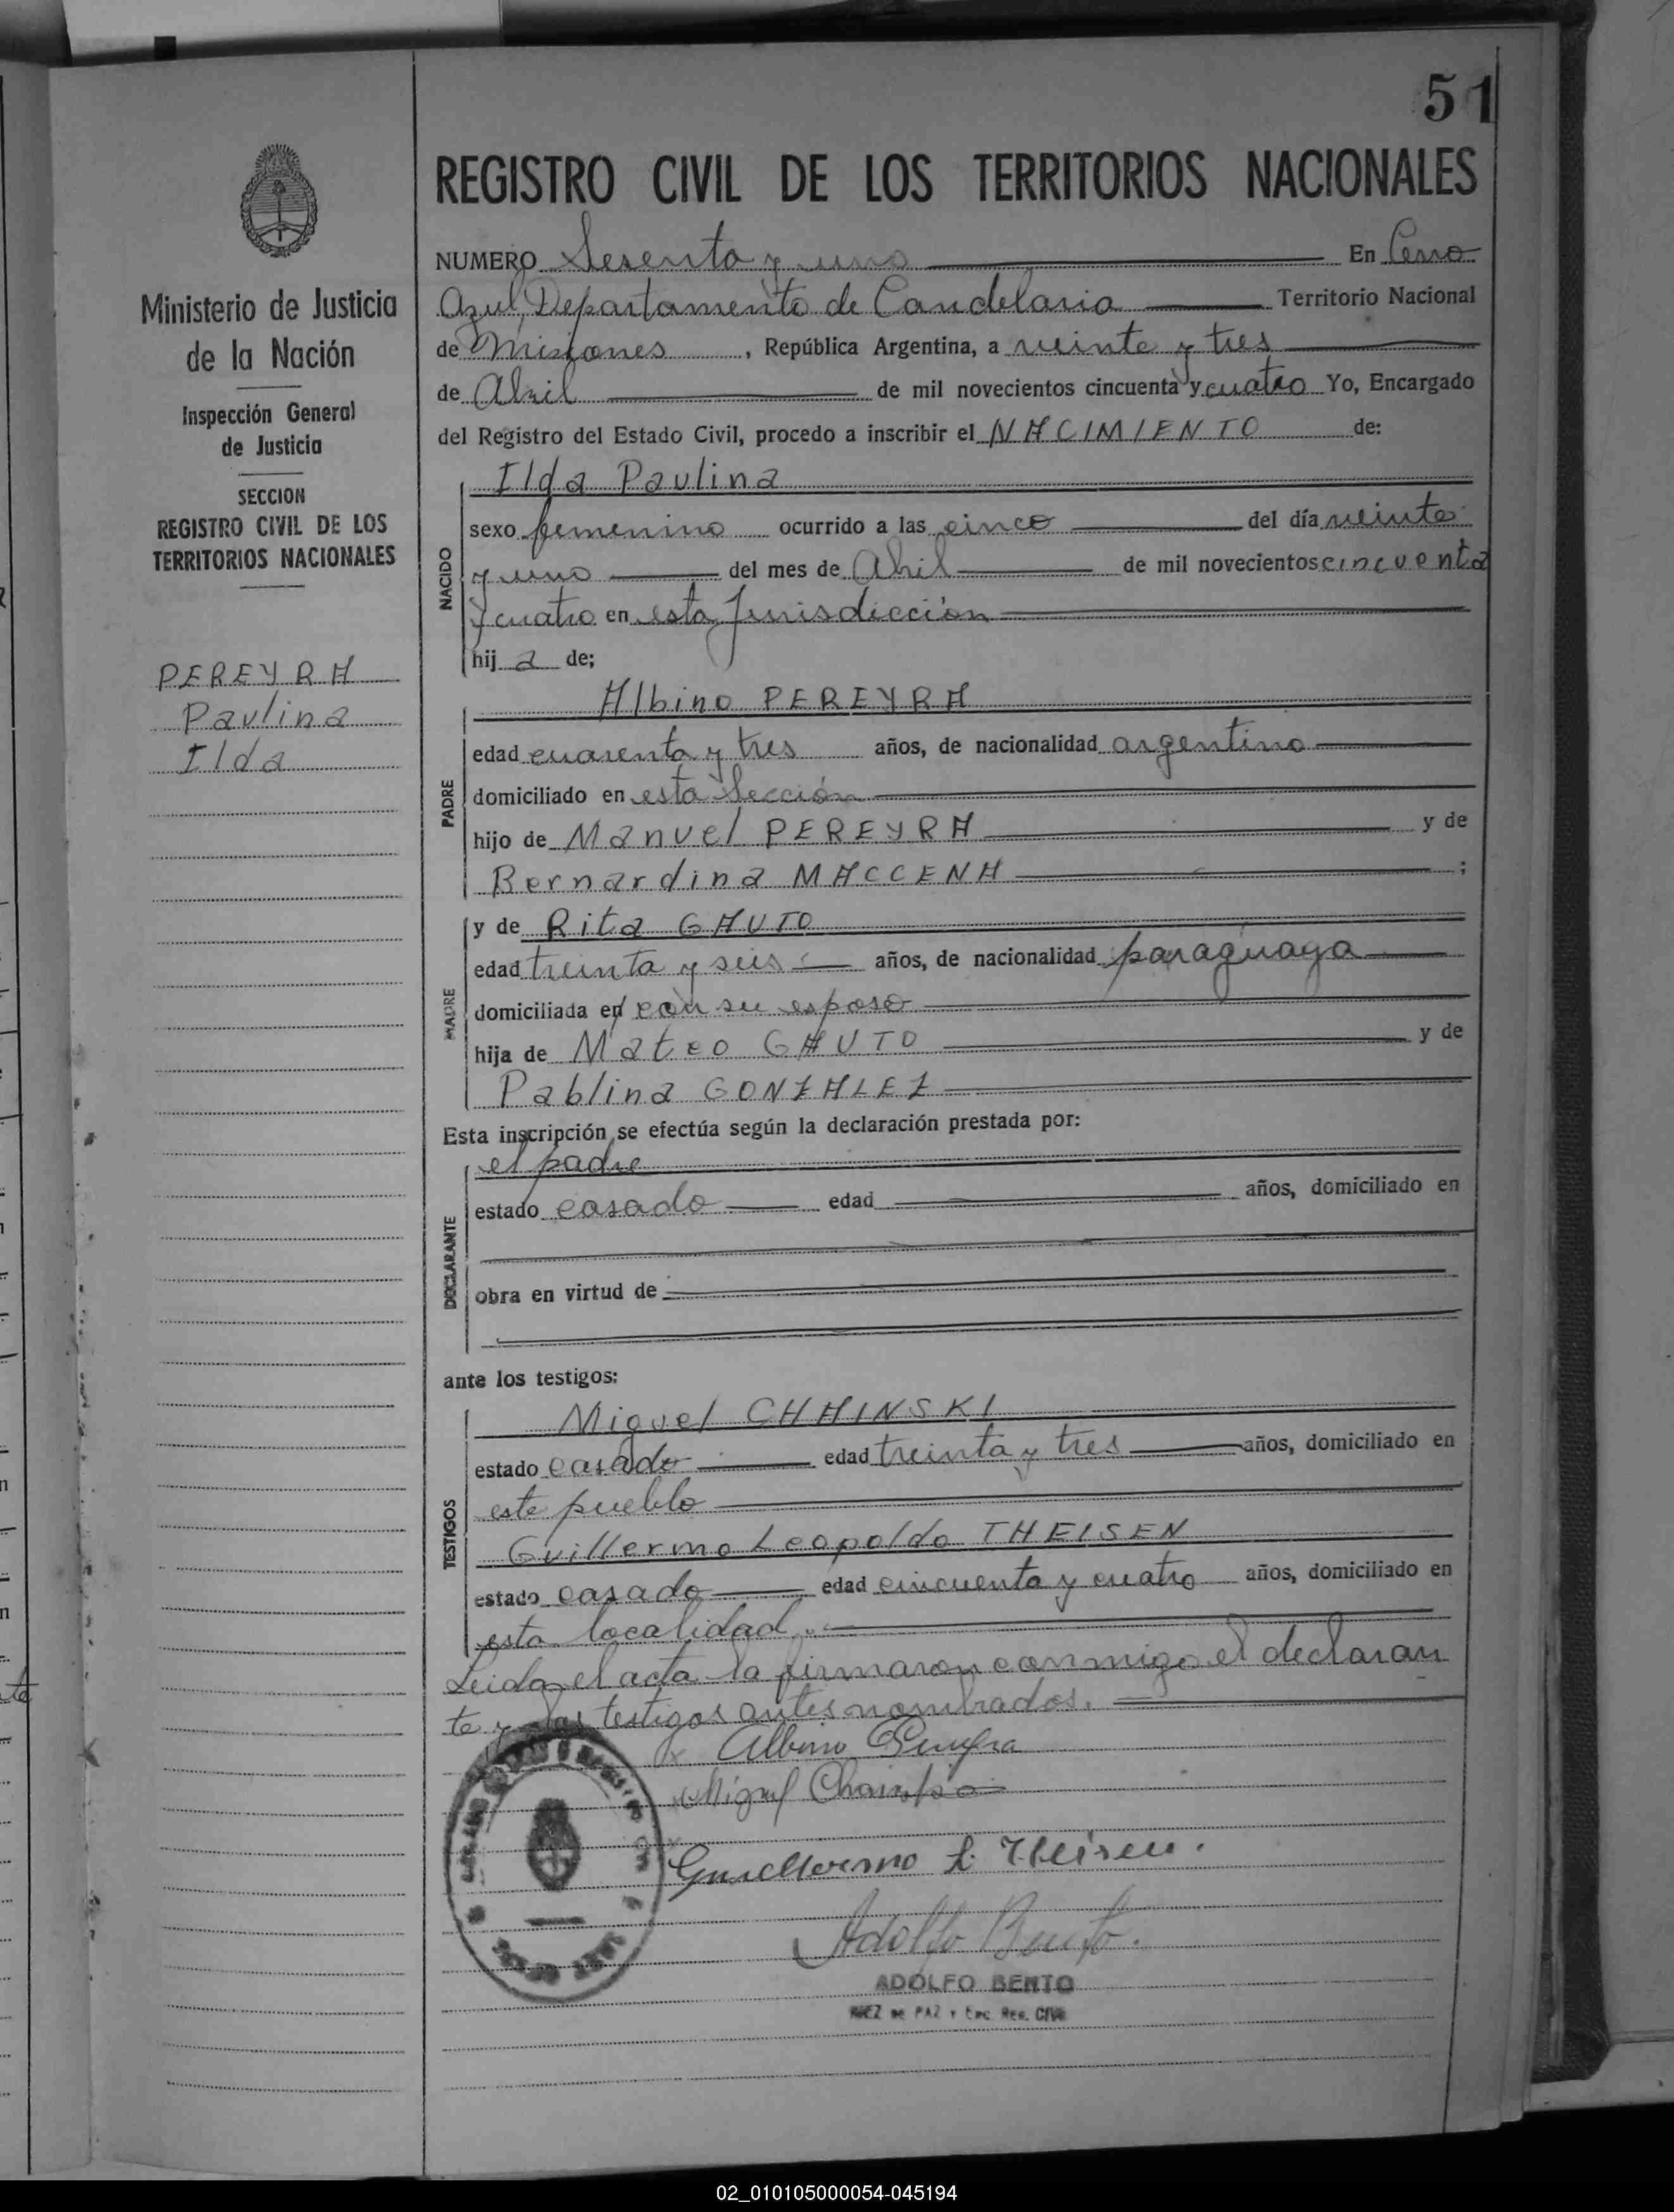 51
REGISTRO CIVIL DE LOS TERRITORIOS NACIONALES
Ministerio de Justicia
de la Nación
Inspección General
de Justicia
SECCION
REGISTRO CIVIL DE LOS
TERRITORIOS NACIONALES
PEREYRA
Paulina
Ilda
NUMERO Sesenta y uno En Cerro
Azul, Departamento de Candelaria Territorio Nacional
de Misiones, República Argentina, a veinte y tres
de Abril de mil novecientos cincuenta y cuatro Yo, Encargado
del Registro del Estado Civil, procedo a inscribir el NACIMIENTO de:
NACIDO
Ilda Paulina
sexo femenino ocurrido a las cinco del día veinte
y uno del mes de Abril de mil novecientos cincuenta
y cuatro en esta Jurisdicción
hij a de;
PADRE
Albino PEREYRA
edad cuarenta y tres años, de nacionalidad argentino
domiciliado en esta Sección
hijo de Manuel PEREYRA y de
Bernardina MACCENA ;
MADRE
y de Rita GAUTO
edad treinta y seis años, de nacionalidad paraguaya
domiciliada en con su esposo
hija de Mateo GAUTO y de
Pablina GONZALEZ
Esta inscripción se efectúa según la declaración prestada por:
DECLARANTE
el padre
estado casado edad años, domiciliado en
obra en virtud de
ante los testigos:
TESTIGOS
Miguel CHAINSKI
estado casado edad treinta y tres años, domiciliado en
este pueblo
Guillermo Leopoldo THEISEN
estado casado edad cincuenta y cuatro años, domiciliado en
esta localidad.
Leida el acta la firmaron conmigo el declaran
te y los testigos antes nombrados.
Albino Pereyra
Miguel Chainski
Guillermo L. Theisen.
Adolfo Bento.
ADOLFO BENTO
JUEZ DE PAZ Y ENC. REG. CIVIL
02_010105000054-045194